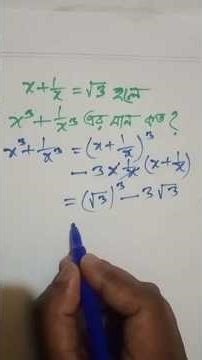 x + 1/x = √3 হলে
x³ + 1/x³ এর মান কত?
x³ + 1/x³ = (x + 1/x)³
- 3x · 1/x (x + 1/x)
= (√3)³ - 3√3